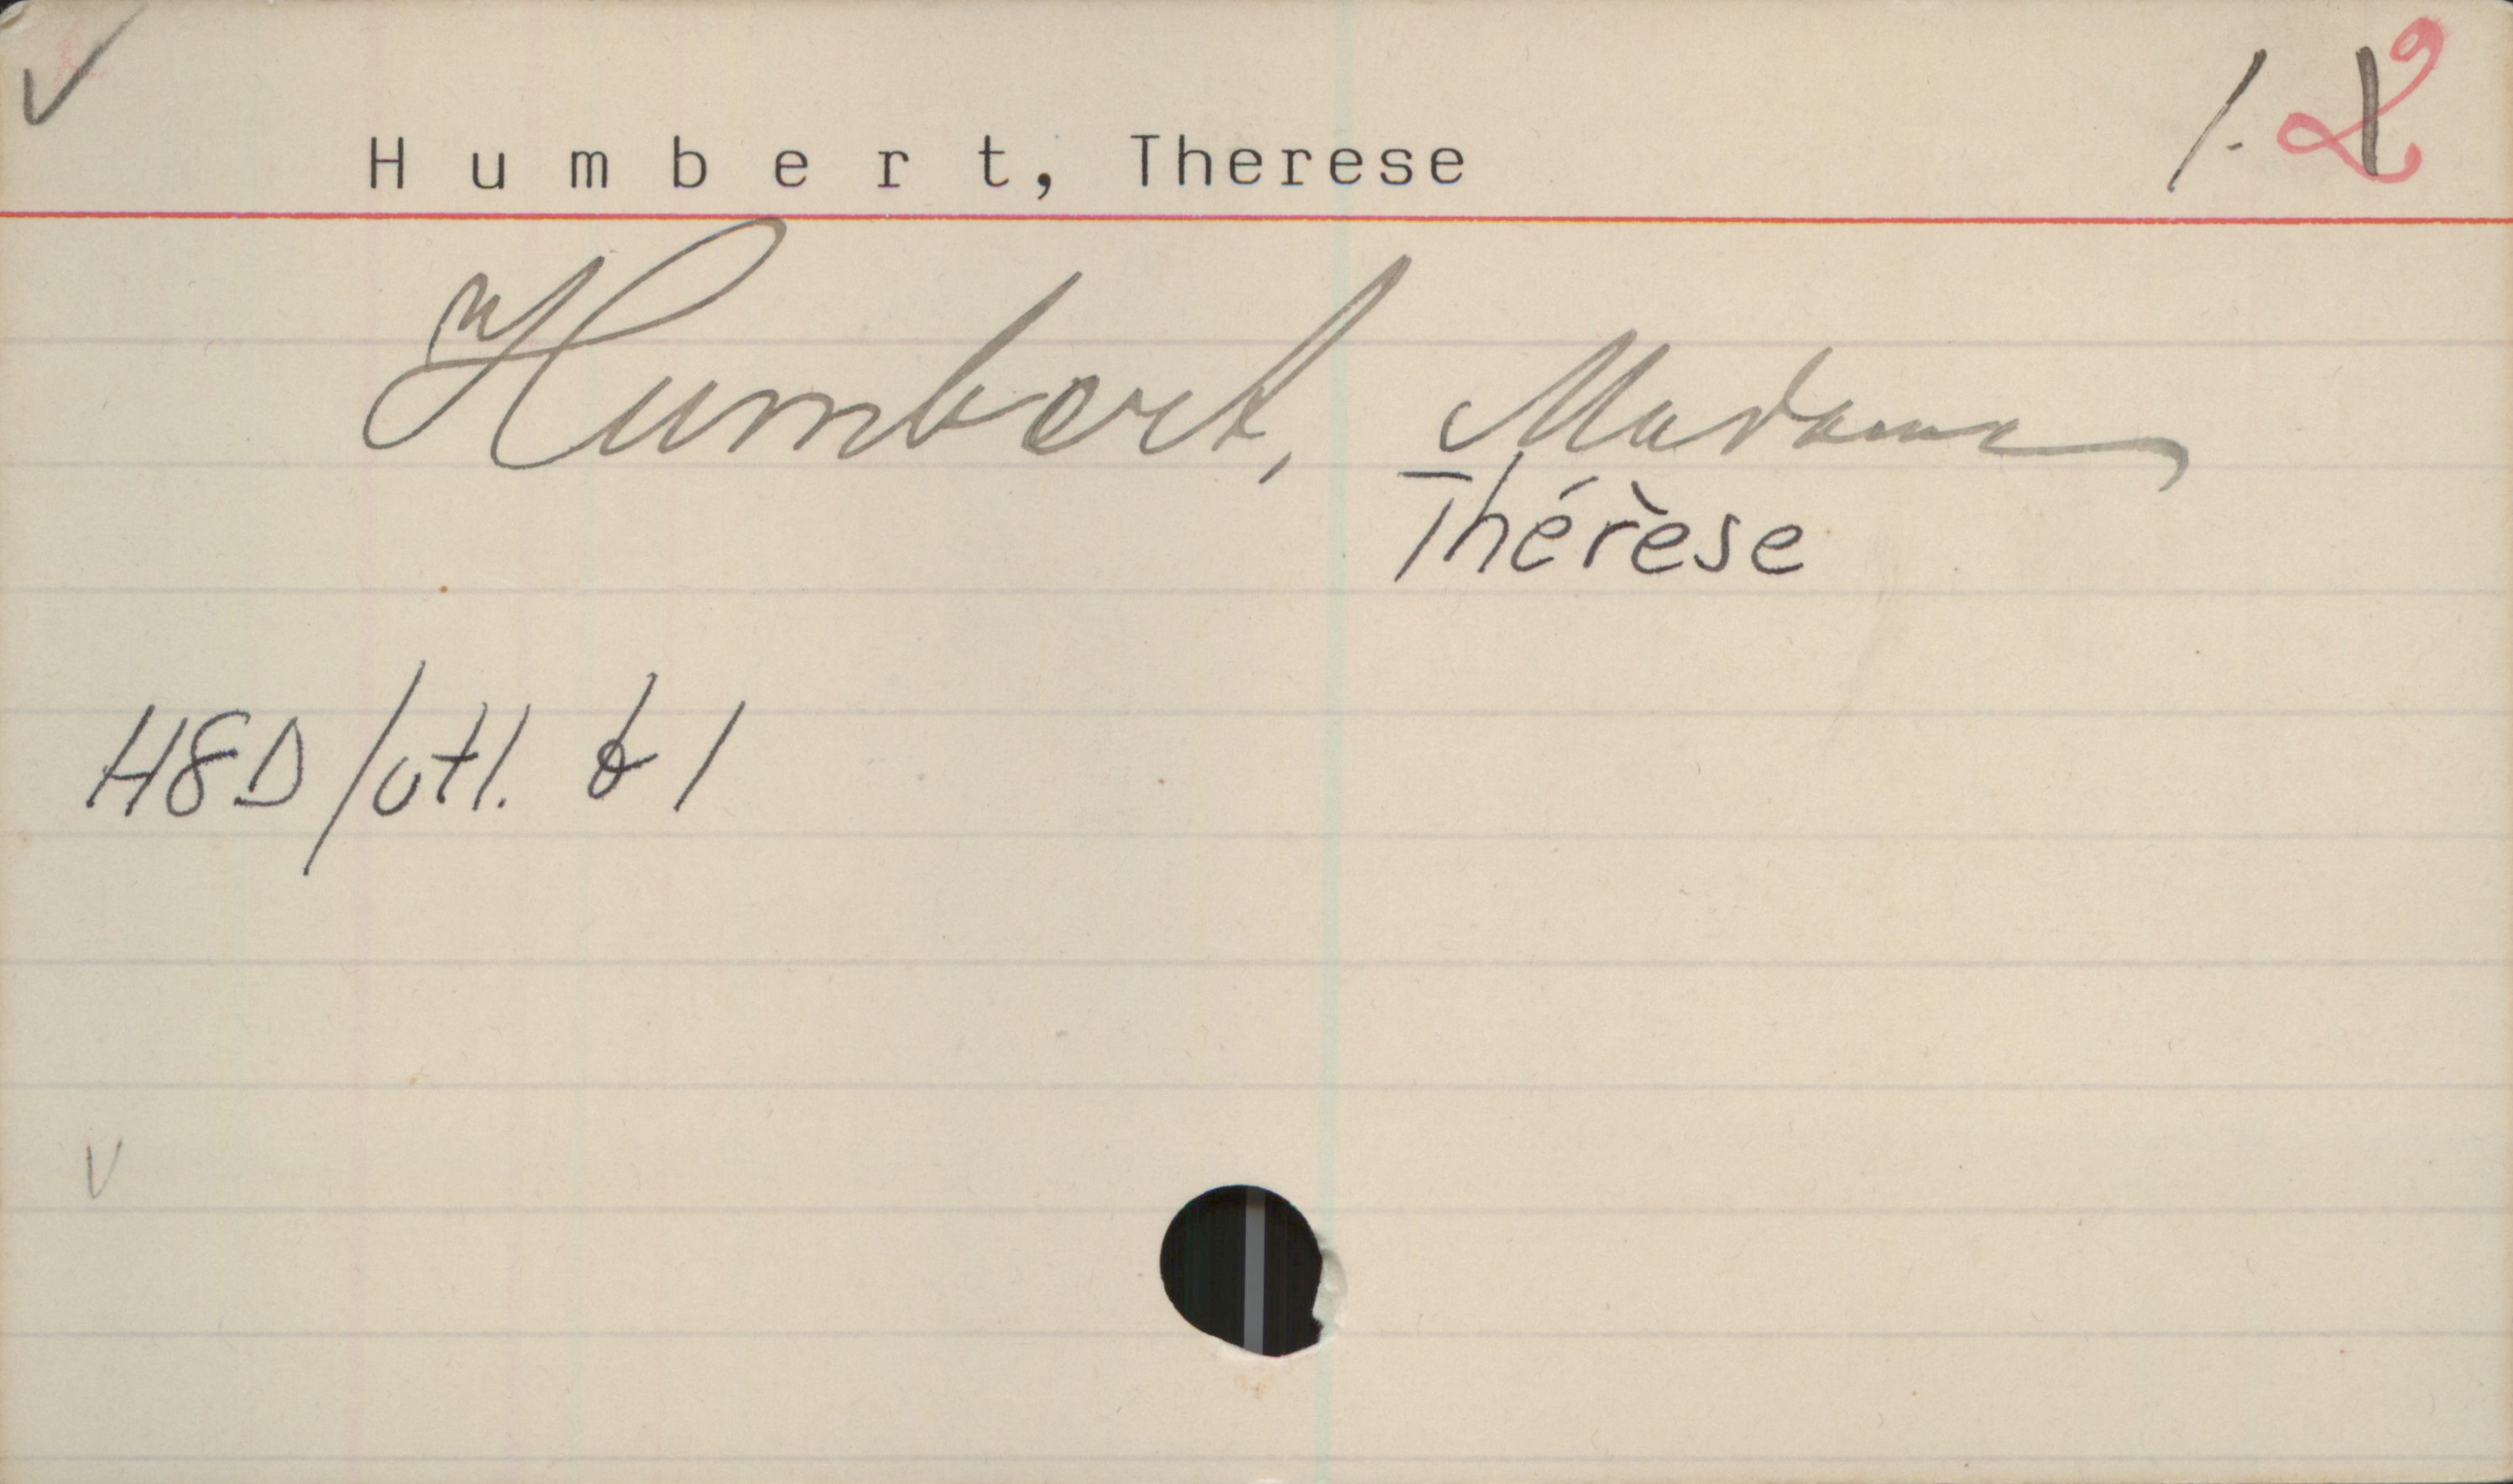 Humbert, Therese
Humbert, Madame
Thérèse
H8D/utl. & 1